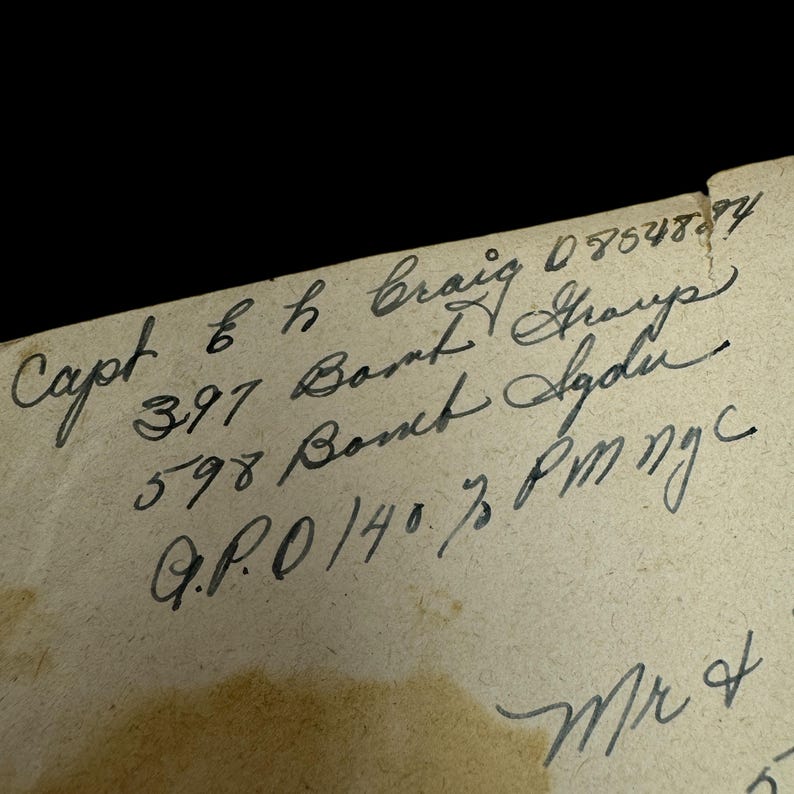 Capt E L Craig
397 Bomb Group
598 Bomb Sqdn
A.P.O 140 % PM nyc
Mr &